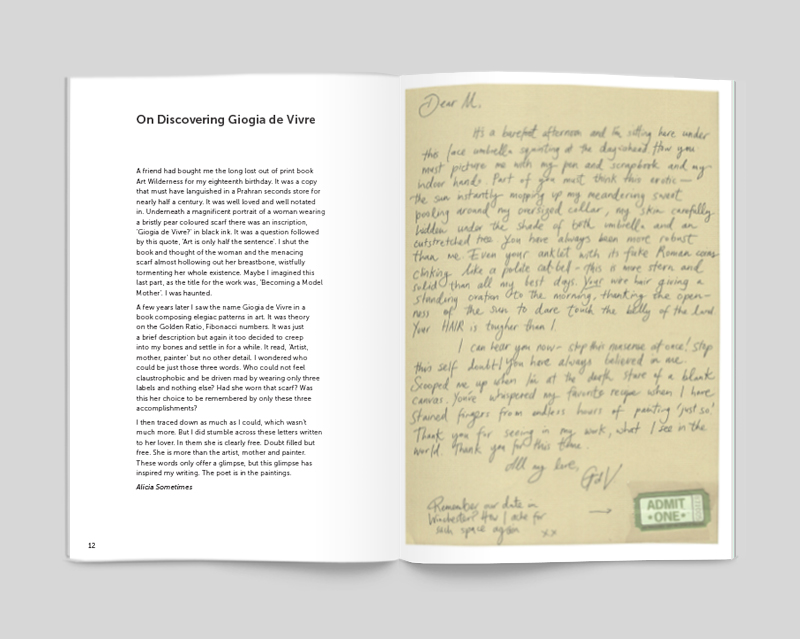 On Discovering Giogia de Vivre
A friend had bought me the long lost out of print book
Art Wilderness for my eighteenth birthday. It was a copy
that must have languished in a Prahran seconds store for
nearly half a century. It was well loved and well notated
in. Underneath a magnificent portrait of a woman wearing
a bristly pear coloured scarf there was an inscription,
'Giogia de Vivre?' in black ink. It was a question followed
by this quote, 'Art is only half the sentence'. I shut the
book and thought of the woman and the menacing
scarf almost hollowing out her breastbone, wistfully
tormenting her whole existence. Maybe I imagined this
last part, as the title for the work was, 'Becoming a Model
Mother'. I was haunted.
A few years later I saw the name Giogia de Vivre in a
book composing elegiac patterns in art. It was theory
on the Golden Ratio, Fibonacci numbers. It was just
a brief description but again it too decided to creep
into my bones and settle in for a while. It read, 'Artist,
mother, painter' but no other detail. I wondered who
could be just those three words. Who could not feel
claustrophobic and be driven mad by wearing only three
labels and nothing else? Had she worn that scarf? Was
this her choice to be remembered by only these three
accomplishments?
I then traced down as much as I could, which wasn't
much more. But I did stumble across these letters written
to her lover. In them she is clearly free. Doubt filled but
free. She is more than the artist, mother and painter.
These words only offer a glimpse, but this glimpse has
inspired my writing. The poet is in the paintings.
Alicia Sometimes
12
Dear M.
It's a barefoot afternoon and I'm sitting here under
this lace umbrella squinting at the daysahead. How you
must picture me with my pen and scrapbook and my
indoor hands. Part of you must think this exotic—
the sun instantly mopping up my meandering sweat
pooling around my oversized collar, my skin carefully
hidden under the shade of both umbrella and an
outstretched tree. You have always been more robust
than me. Even your anklet with its fake Roman coins
clinking like a polite cat-bell - this is more stern and
solid than all my best days. Your wire hair giving a
standing ovation to the morning, thanking the open-
ness of the sun to dare touch the belly of the land.
Your HAIR is tougher than I.
I can hear you now - stop this nonsense at once! Stop
this self doubt! You have always believed in me.
Scooped me up when I'm at the dark stare of a blank
canvas. You've whispered my favorite recipe when I have
stained fingers from endless hours of painting 'just so'
Thank you for seeing in my work, what I see in the
world. Thank you for this time.
All my love,
GdV
Remember our date in
Winchester? How I ache for
such space again
xx
ADMIT
ONE